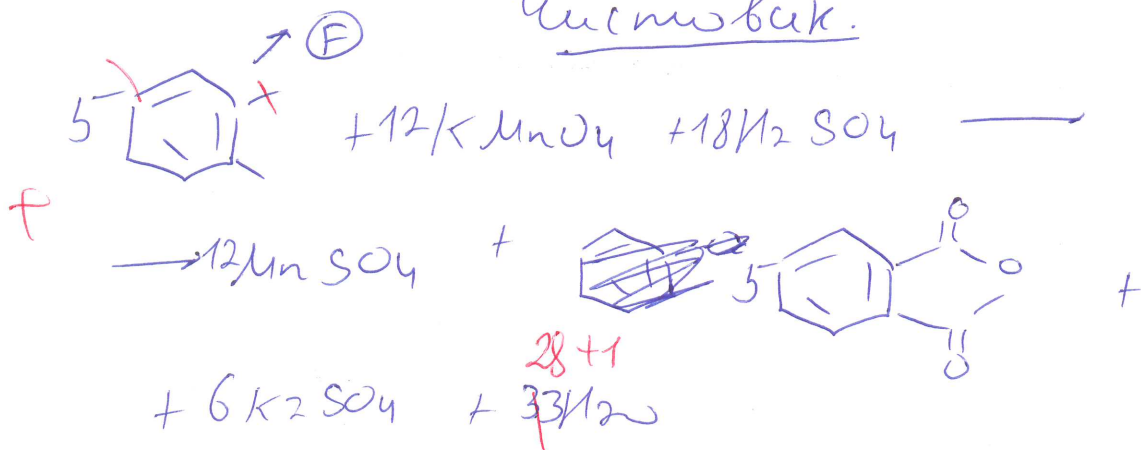 Чистовик.
F
5 +12KMnO4 +18H2SO4
+
12MnSO4 + 5 O O O +
28+1
+ 6K2SO4 + 33H2O